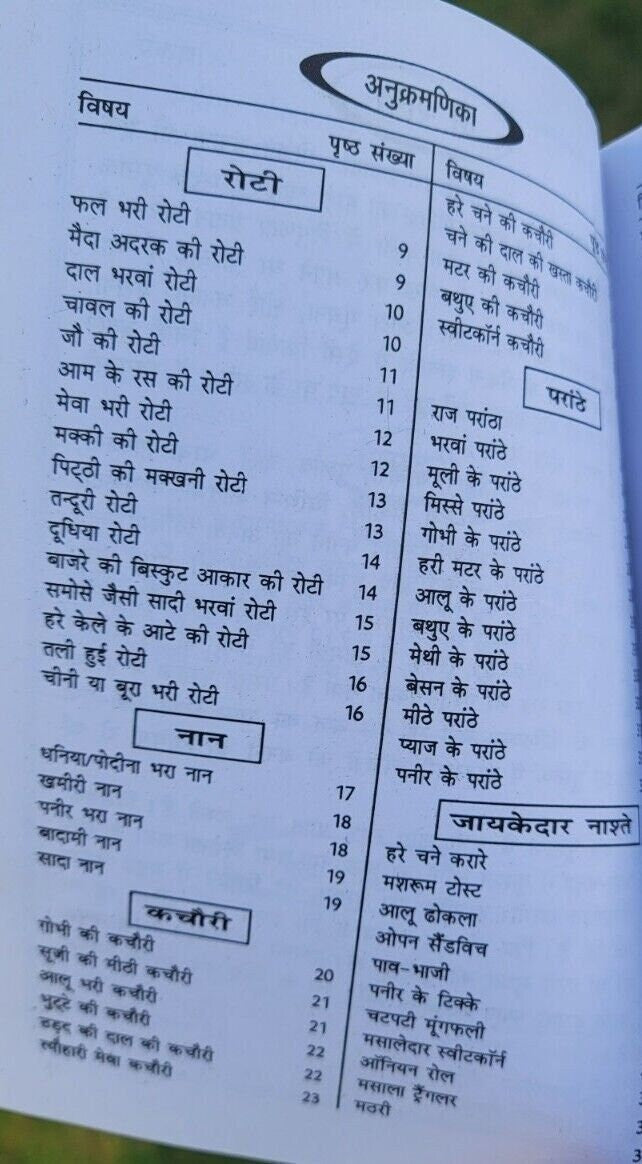 अनुक्रमणिका
विषय पृष्ठ संख्या
रोटी
फल भरी रोटी 9
मैदा अदरक की रोटी 9
दाल भरवां रोटी 10
चावल की रोटी 10
जौ की रोटी 11
आम के रस की रोटी 11
मेवा भरी रोटी 12
मक्की की रोटी 12
पिट्ठी की मक्खनी रोटी 13
तन्दूरी रोटी 13
दूधिया रोटी 14
बाजरे की बिस्कुट आकार की रोटी 14
समोसे जैसी सादी भरवां रोटी 15
हरे केले के आटे की रोटी 15
तली हुई रोटी 16
चीनी या बूरा भरी रोटी 16
नान
धनिया/पोदीना भरा नान 17
खमीरी नान 18
पनीर भरा नान 18
बादामी नान 19
सादा नान 19
कचौरी
गोभी की कचौरी 20
सूजी की मीठी कचौरी 21
आलू भरी कचौरी 21
भुट्टे की कचौरी 22
उड़द की दाल की कचौरी 22
मेवा कचौरी 23
विषय
हरे चने की कचौरी
चने की दाल की खस्ता कचौरी
मटर की कचौरी
बथुए की कचौरी
स्वीटकॉर्न कचौरी
परांठे
राज परांठा
भरवां परांठे
मूली के परांठे
मिस्से परांठे
गोभी के परांठे
हरी मटर के परांठे
आलू के परांठे
बथुए के परांठे
मेथी के परांठे
बेसन के परांठे
मीठे परांठे
प्याज के परांठे
पनीर के परांठे
जायकेदार नाश्ते
हरे चने करारे
मशरूम टोस्ट
आलू ढोकला
ओपन सैंडविच
पाव-भाजी
पनीर के टिक्के
चटपटी मूंगफली
मसालेदार स्वीटकॉर्न
ऑनियन रोल
मसाला ट्रैंगलर
मठरी